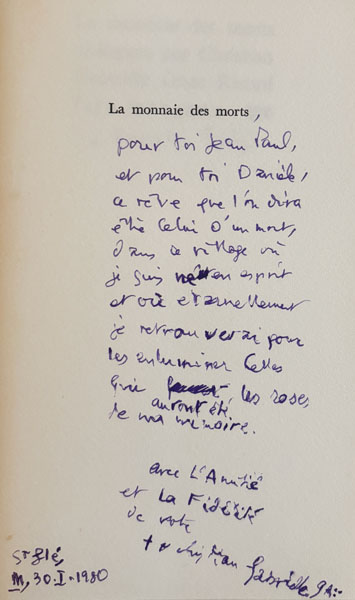 La monnaie des morts,
pour toi Jean Paul,
et pour toi Danièle,
ce rêve que l'on dira
être celui d'un mort,
dans ce village où
je suis né en esprit
et où éternellement
je retrouverai pour
les enluminer celles
qui les roses
auront été
de ma mémoire.
avec L'Amitié
et La Fidélité
de votre
Gabrielle
III, 30.I.1980